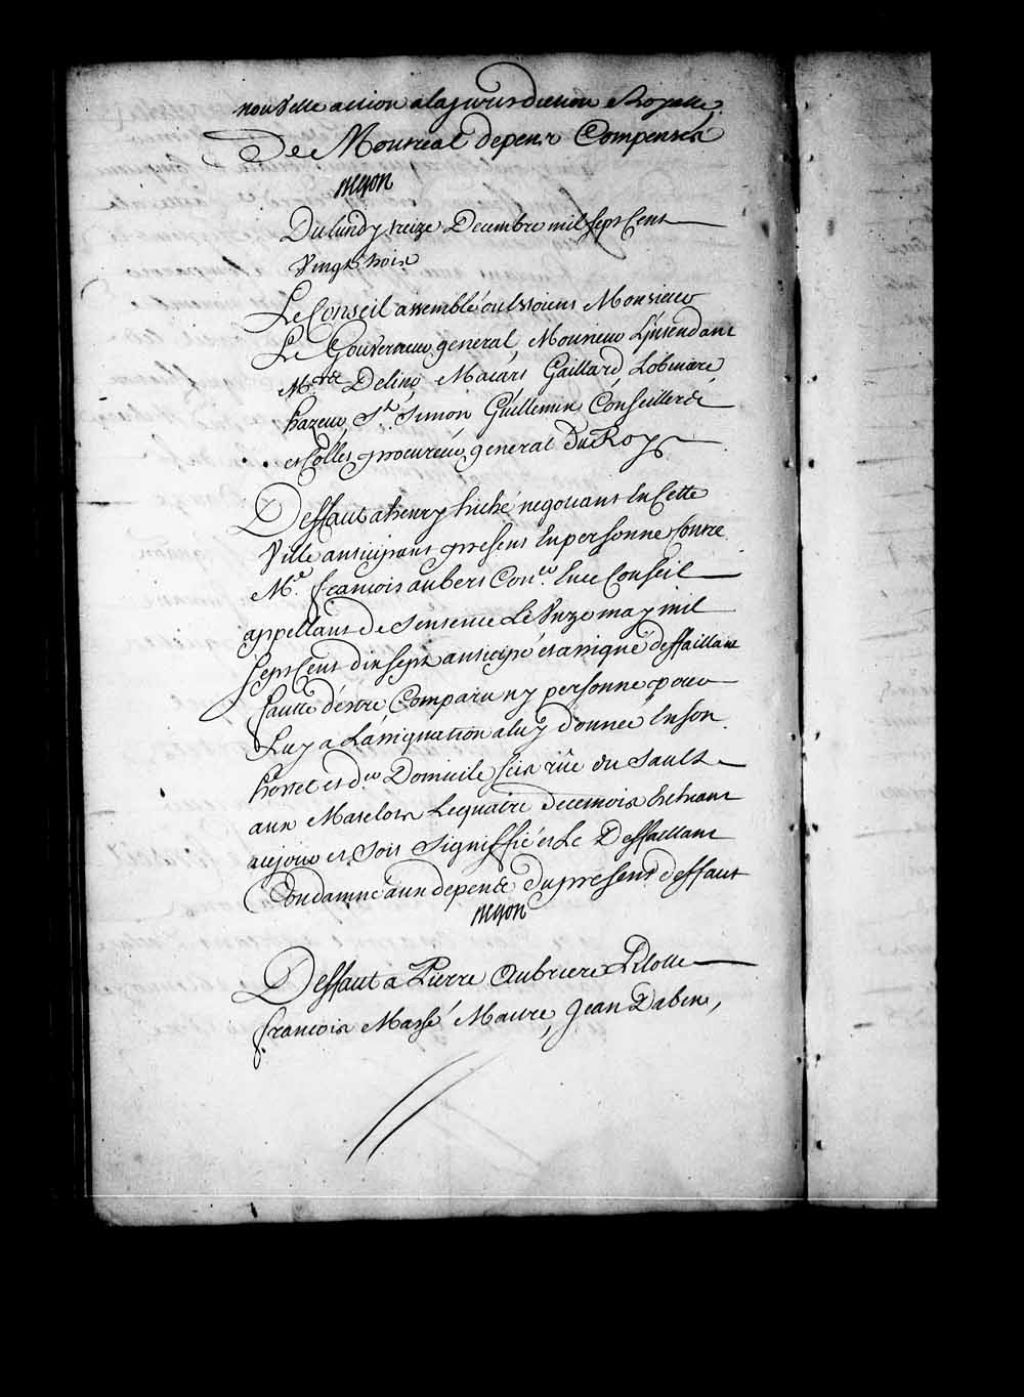 nouvelle action a la jurisdiction Royalle
De Montreal depens Compensés
Begon
Du lundy treize Decembre mil sept Cent
vingt trois
Le Conseil assemblé ou estoient Monsieur
Le Gouverneur general, Monsieur L'intendant
Mrs Delino Macart Gaillard, Lobiniere
hazeur, St Simon Guillemin Conseillers
et Collet procureur general Du Roy
Deffaut a henry hiché negotiant en Cette
Ville anticipant present en personne Contre
Me francois aubert Coner en ce Conseil
appellant de sentence Le Unze may mil
sept Cent dix sept anticipé et assigné deffaillant
faute d'estre Comparu ny personne pour
Luy a L'assignation a luy donnee en son
hostel et de Domicile scis rüe du Sault
aux Matelots Le quatre de ce mois Intimant
au jour et soit signiffié et Le Deffaillant
Condamné aux depens du present deffaut
Begon
Deffaut a Pierre Pilotte
francois Massé Maitre, Jean